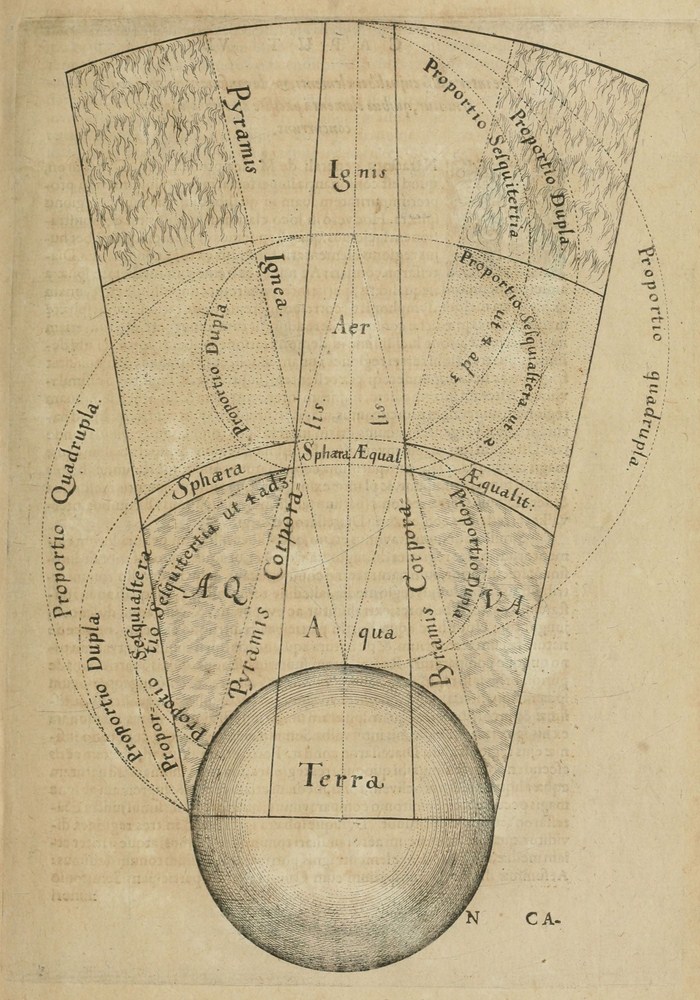 Pyramis
Ignis
Proportio Sesquitertia
Proportio Dupla
Ignea.
Aer
Proportio Dupla
Proportio Sesquialtera ut 2
ut 4 ad 3
Proportio quadrupla.
lis.
lis.
Sphæra
Sphæra Æqual
Æqualit:
Proportio Quadrupla.
Proportio Dupla
Sesquialtera
Propor
tio Sesquitertia ut 4 ad 3
Propotio
Corpora
Corpora.
Proportio Dupla
A Q
VA
Pyramis
Pyramis
A qua
Terra
N CA-